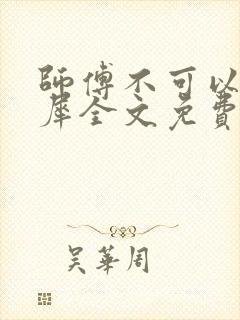 師傅不可以
犀全文免費
吴華周